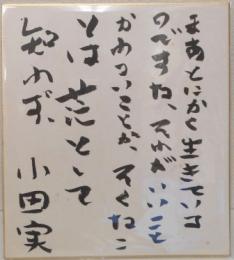 まあとにかく生きている
のですね、それがいいこと
かわるいことか、そくねこ
とは茫として
知れず 小田実